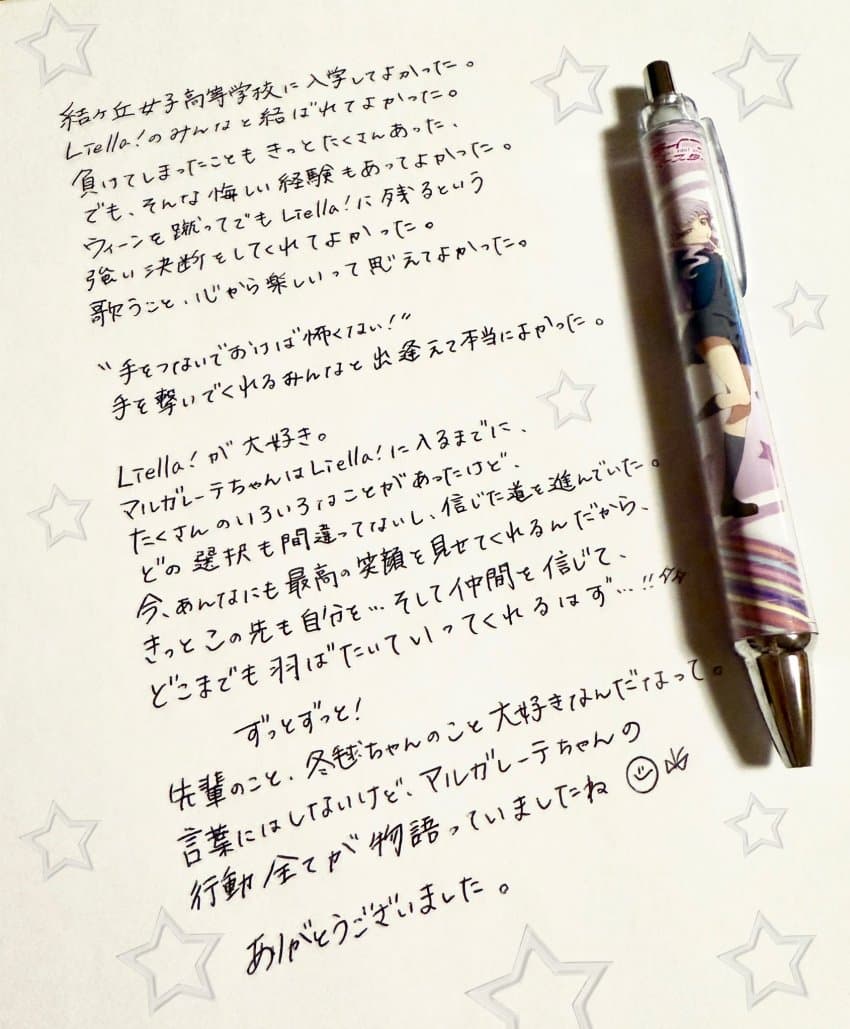 結ヶ丘女子高等学校に入学してよかった。
Liella!のみんなと結ばれてよかった。
負けてしまったこともきっとたくさんあった、
でも、そんな悔しい経験もあってよかった。
ウィーンを蹴ってでもLiella!に残るという
強い決断をしてくれてよかった。
歌うこと、心から楽しいって思えてよかった。
"手をつないでおけば怖くない!"
手を繋いでくれるみんなと出逢えて本当によかった。
Liella!が大好き。
マルガレーテちゃんはLiella!に入るまでに、
たくさんのいろいろなことがあったけど、
どの選択も間違ってないし、信じた道を進んでいた。
今、あんなにも最高の笑顔を見せてくれるんだから、
きっとこの先も自分を…そして仲間を信じて、
どこまでも羽ばたいていってくれるはず…!!
ずっとずっと!
先輩のこと、冬毬ちゃんのこと大好きなんだなって。
言葉にはしないけど、マルガレーテちゃんの
行動全てが物語っていましたね
ありがとうございました。